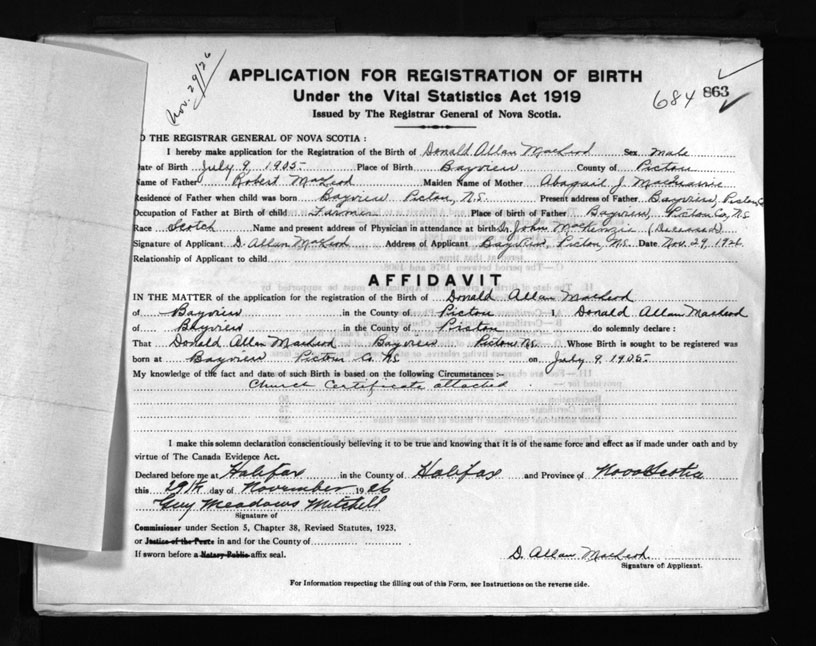 Nov. 29/26
APPLICATION FOR REGISTRATION OF BIRTH
Under the Vital Statistics Act 1919
684 863
Issued by The Registrar General of Nova Scotia.
O THE REGISTRAR GENERAL OF NOVA SCOTIA :
I hereby make application for the Registration of the Birth of Donald Allan MacLeod Sex Male
Date of Birth July 9, 1905 Place of Birth Bayview County of Pictou
Name of Father Robert MacLeod Maiden Name of Mother Abagail J.
Residence of Father when child was born Bayview Pictou, N.S. Present address of Father Bayview, Pictou Co
Occupation of Father at Birth of child Farmer Place of birth of Father Bayview, Pictou Co, N.S.
Race Scotch Name and present address of Physician in attendance at birth Dr. John MacKenzie (Deceased)
Signature of Applicant D. Allan MacLeod Address of Applicant Bayview, Pictou, N.S. Date Nov. 29, 1926
Relationship of Applicant to child
AFFIDAVIT
IN THE MATTER of the application for the registration of the Birth of Donald Allan MacLeod
of Bayview in the County of Pictou I, Donald Allan MacLeod
of Bayview in the County of Pictou do solemnly declare :
That Donald Allan MacLeod Bayview Pictou N.S. Whose Birth is sought to be registered was
born at Bayview Pictou Co. N.S. on July 9, 1905
My knowledge of the fact and date of such Birth is based on the following Circumstances :—
Church Certificate attached
I make this solemn declaration conscientiously believing it to be true and knowing that it is of the same force and effect as if made under oath and by
virtue of The Canada Evidence Act.
Declared before me at Halifax in the County of Halifax and Province of Nova Scotia
this 29th day of November 1926
Guy Meadows Mitchell
Signature of
Commissioner under Section 5, Chapter 38, Revised Statutes, 1923,
or Justice of the Peace in and for the County of
If sworn before a Notary Public affix seal.
D. Allan MacLeod
Signature of Applicant.
For Information respecting the filling out of this Form, see Instructions on the reverse side.